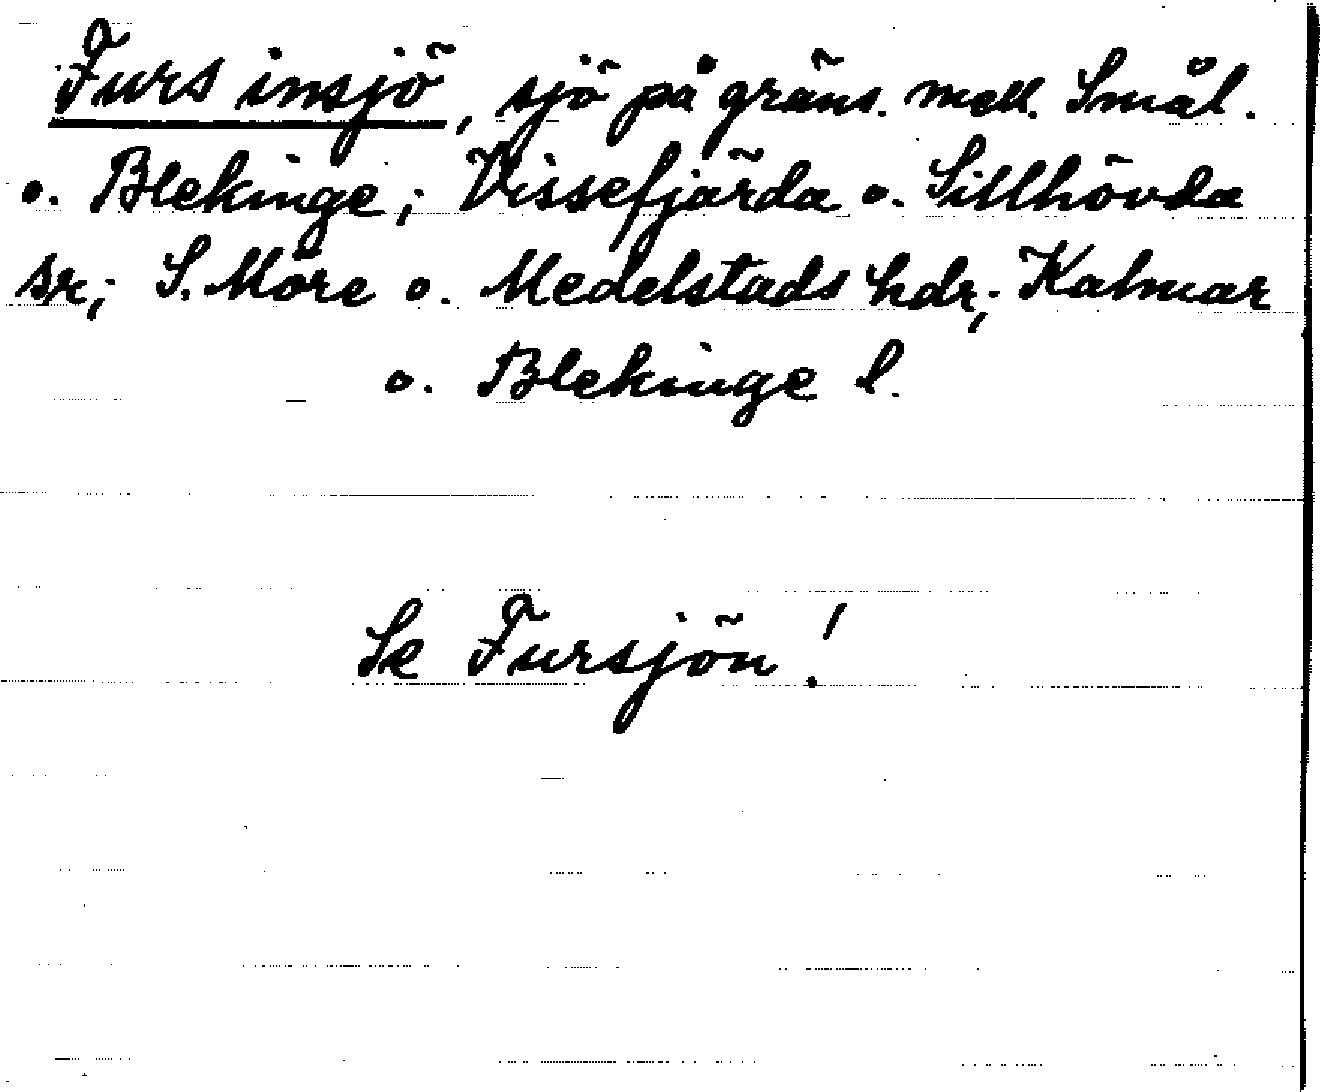 Furs insjö, sjö på gräns. mell. Smål.
o. Blekinge; Vissefjärda o. Sillhövda
sr; S. Möre o. Medelstads hdr; Kalmar
o. Blekinge l.
Se Fursjön!